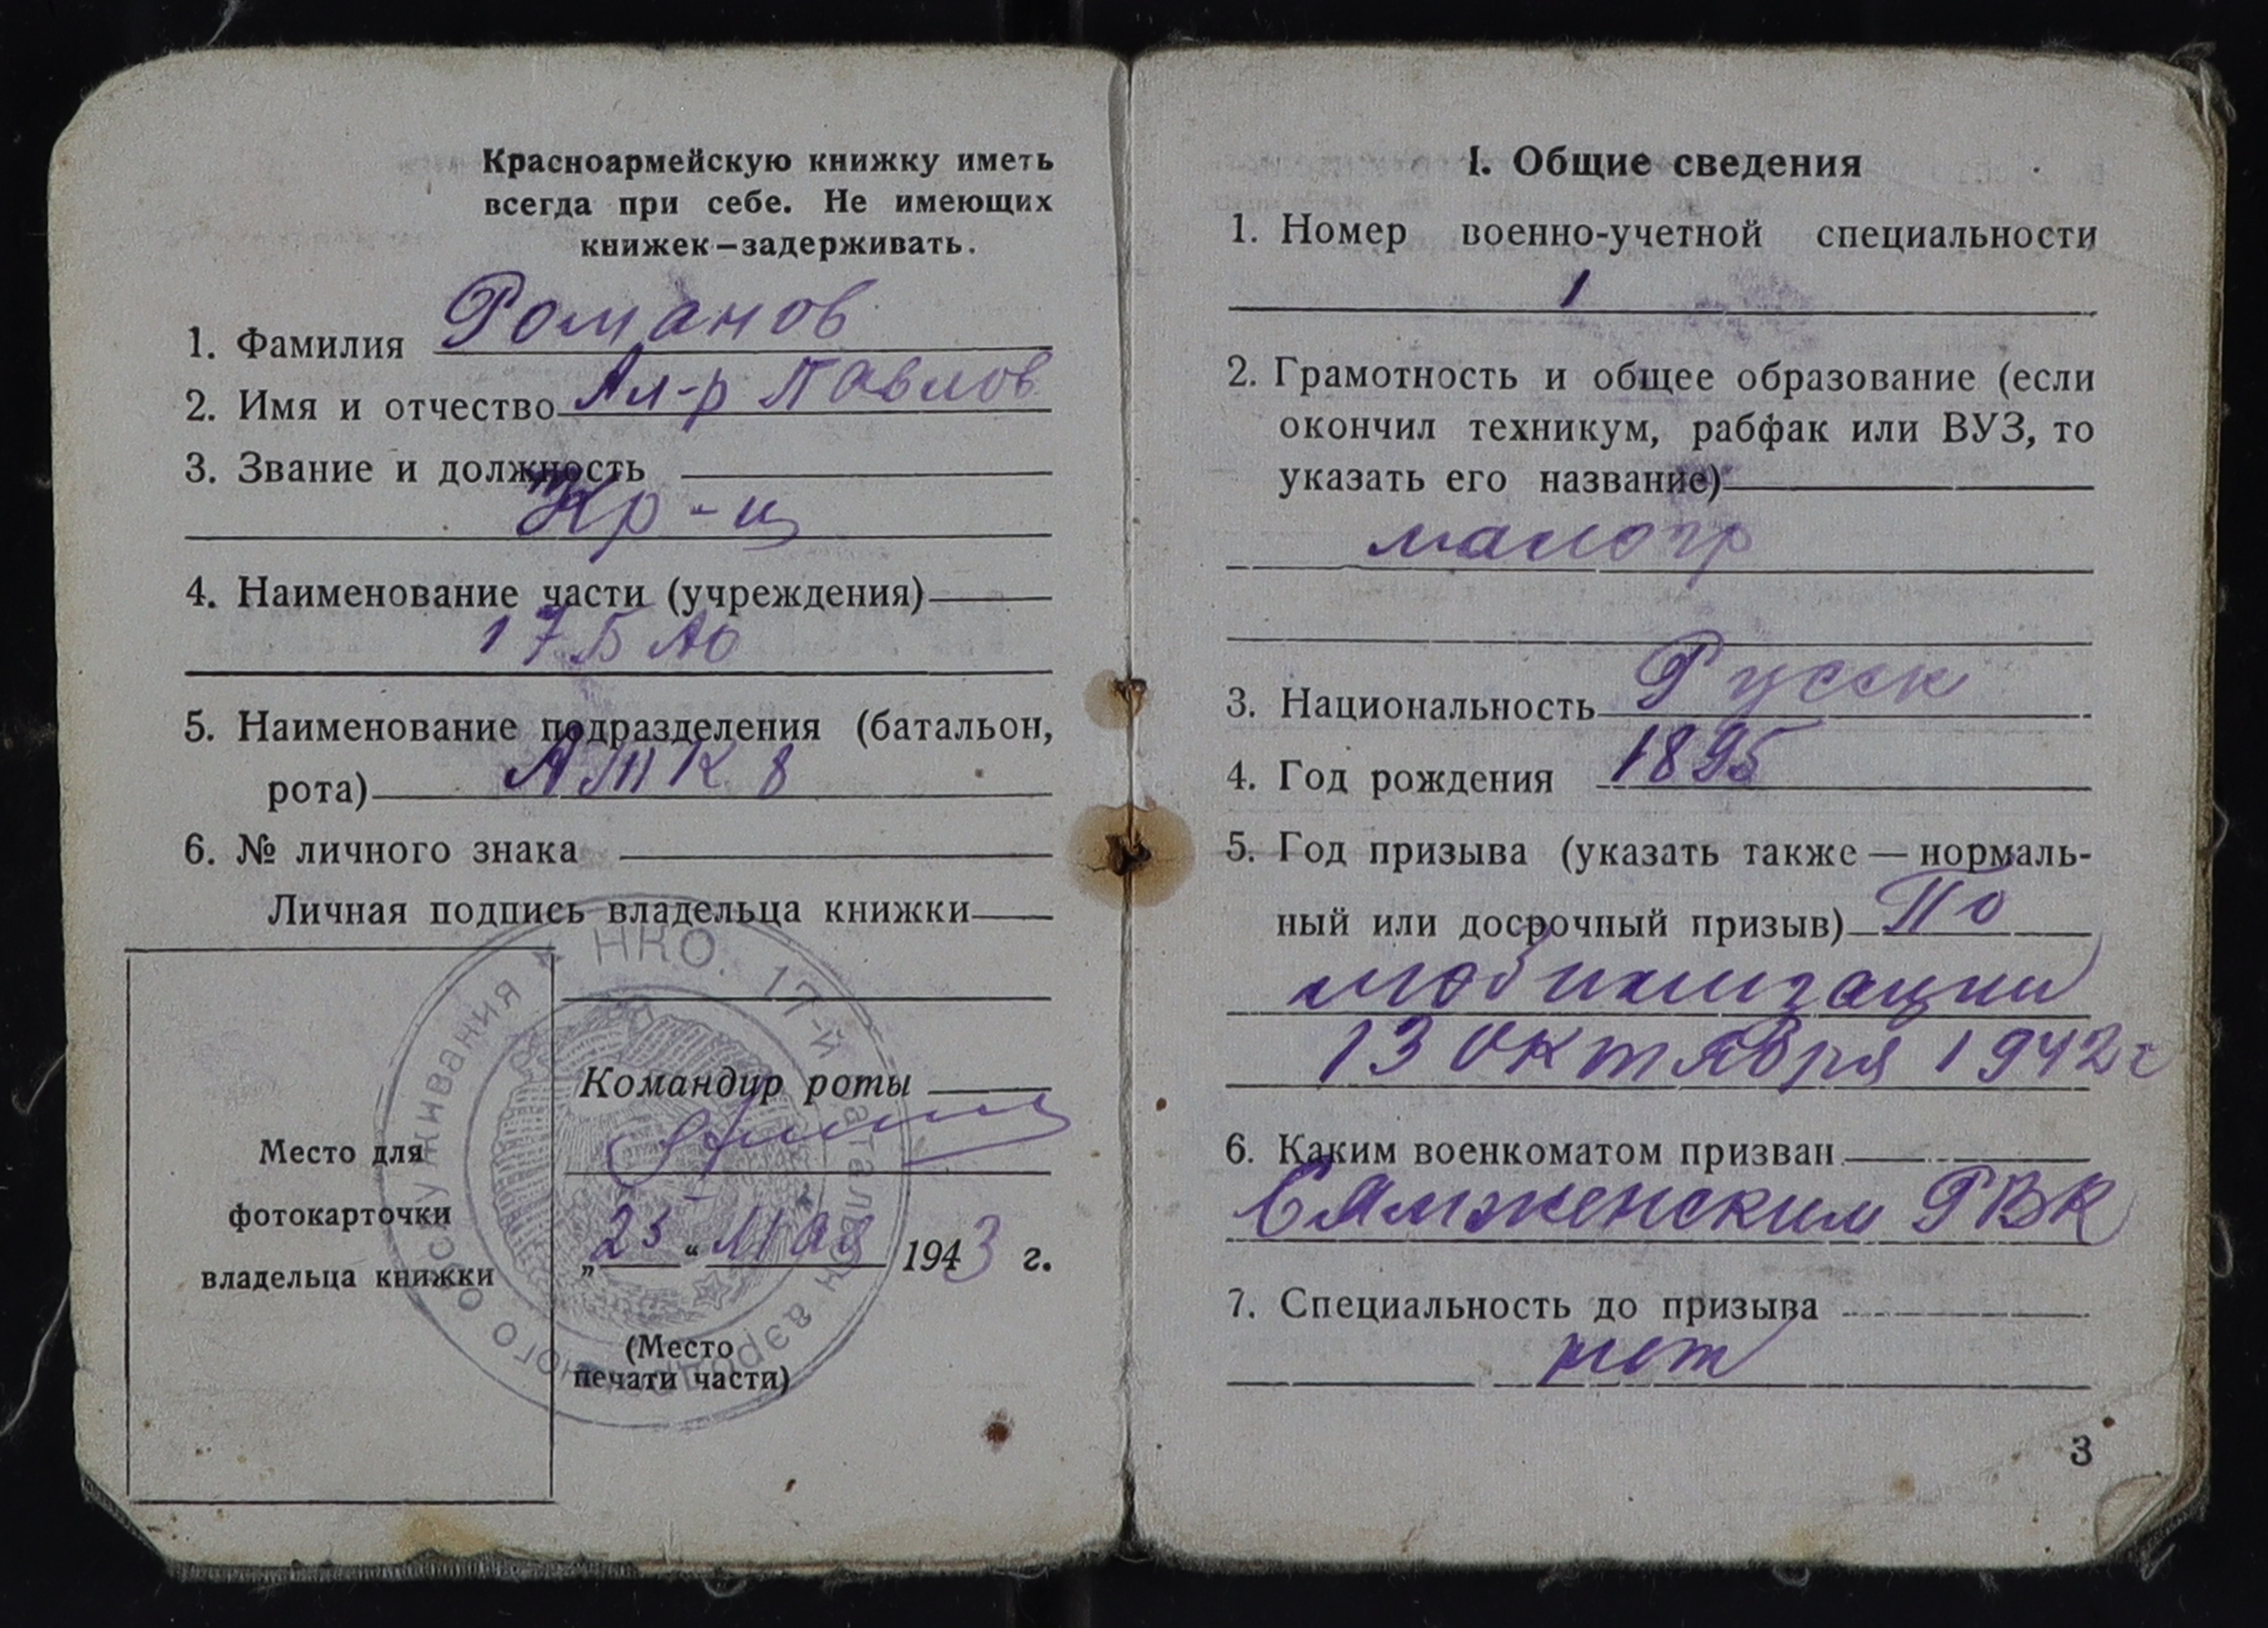 Красноармейскую книжку иметь
всегда при себе. Не имеющих
книжек—задерживать.
1. Фамилия Романов
2. Имя и отчество Ал-р Павлов
3. Звание и должность
Кр-ц
4. Наименование части (учреждения)
17 БАО
5. Наименование подразделения (батальон,
рота) АТК 8
6. № личного знака
Личная подпись владельца книжки
НКО. 17-й батальон аэродромного обслуживания
Командир роты
Место для
фотокарточки
владельца книжки
„25“ Мая 1943 г.
(Место
печати части)
I. Общие сведения
1. Номер военно-учетной специальности
1
2. Грамотность и общее образование (если
окончил техникум, рабфак или ВУЗ, то
указать его название)
малогр
3. Национальность Русск
4. Год рождения 1895
5. Год призыва (указать также — нормаль-
ный или досрочный призыв) По
мобилизации
13 октября 1942 г
6. Каким военкоматом призван
Сямженским РВК
7. Специальность до призыва
нет
3